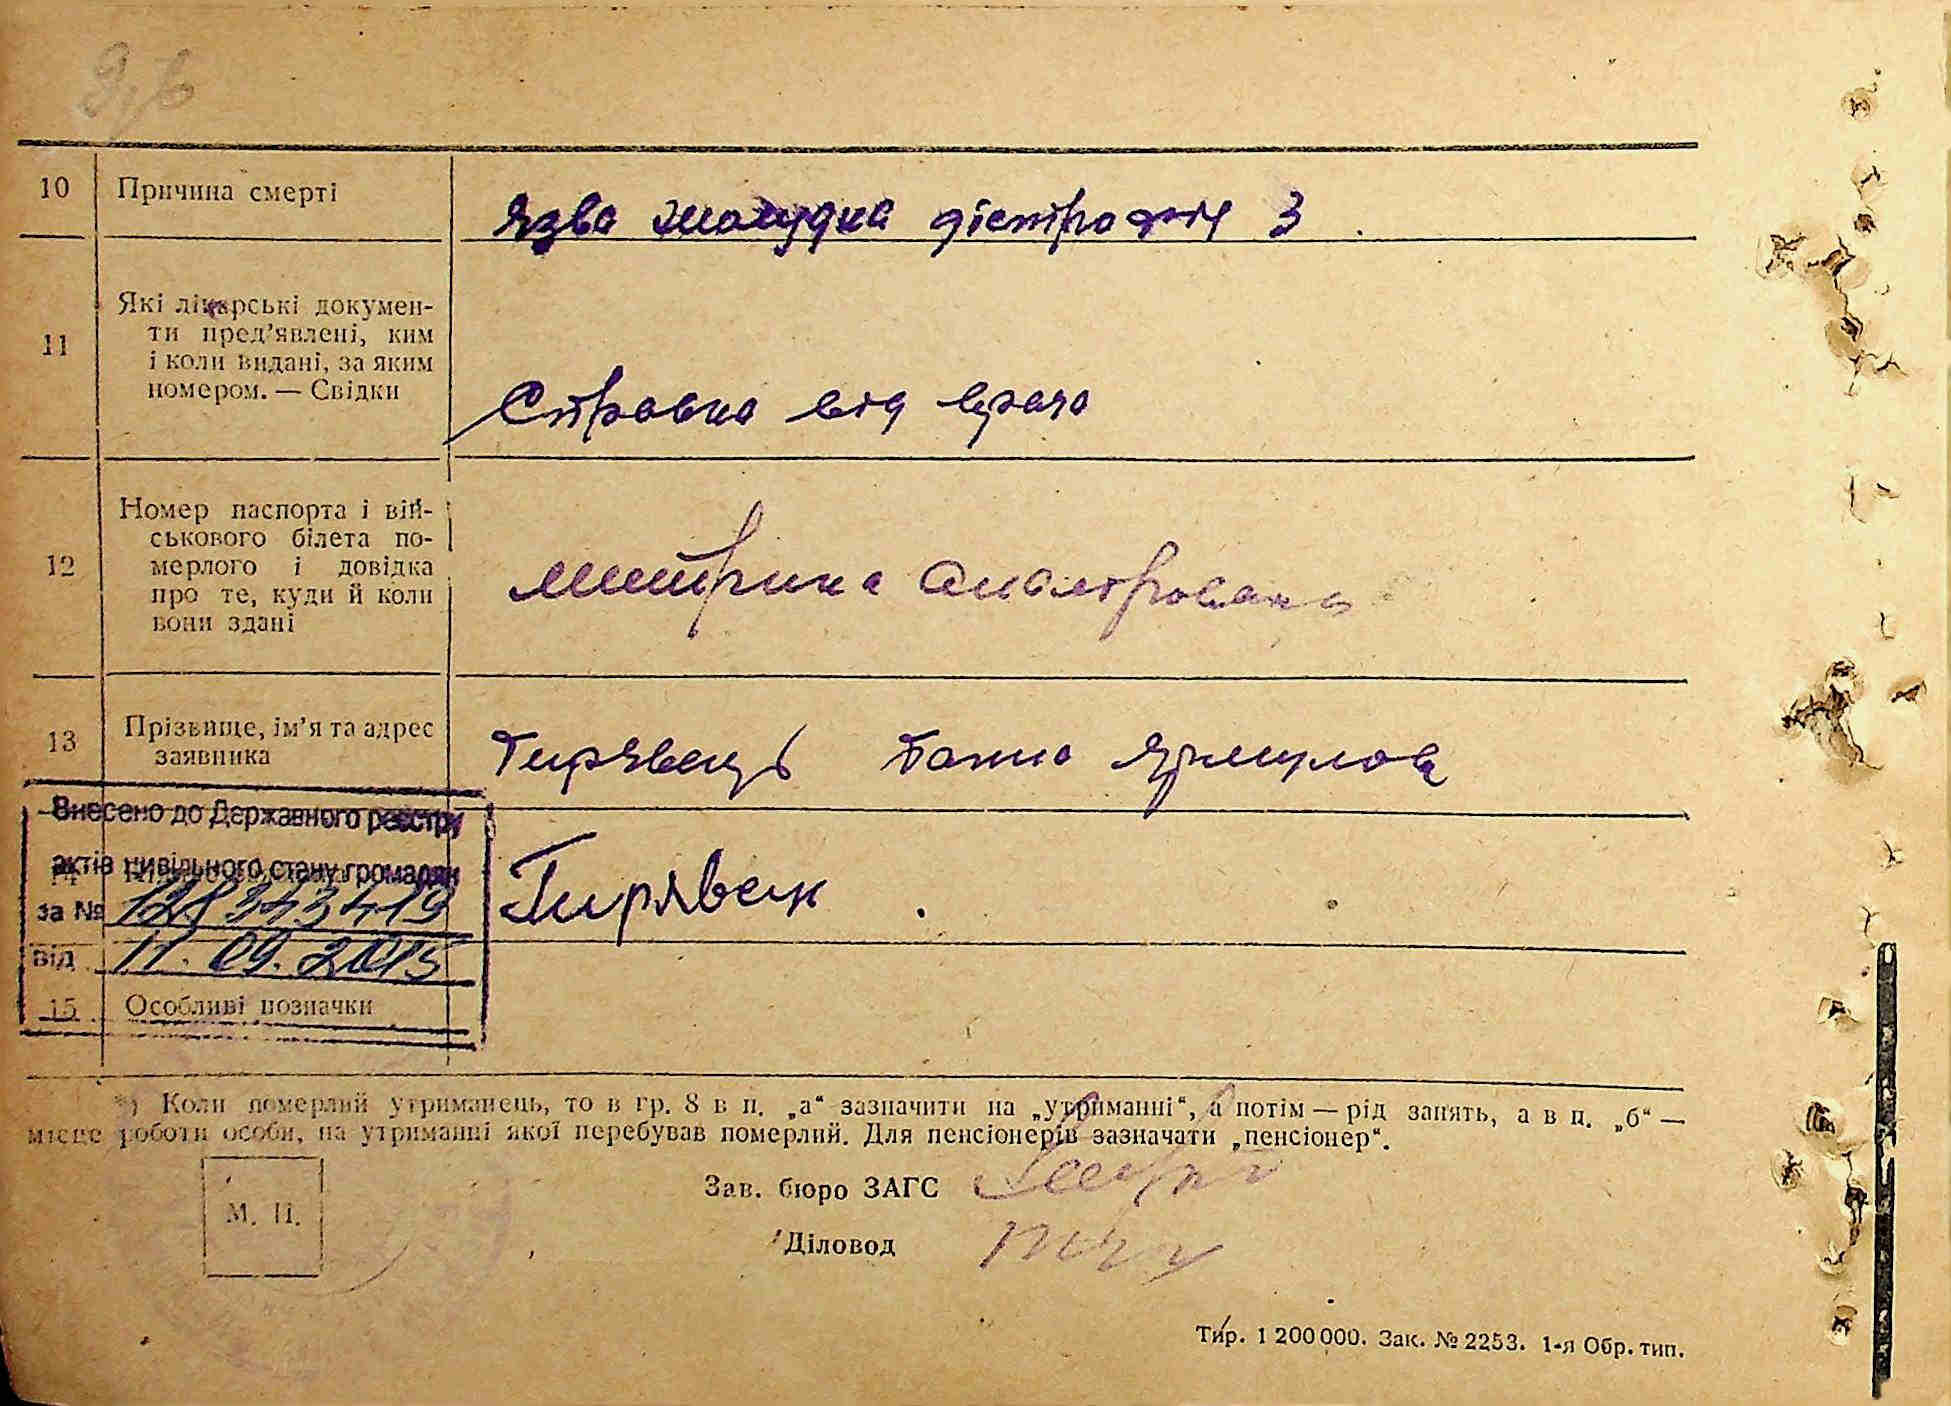 10 Причина смерті
Язва жолудка дістрофія 3
11 Які лікарські докумен-
ти пред'явлені, ким
і коли видані, за яким
номером. — Свідки
Справка від врача
12 Номер паспорта і вій-
ськового білета по-
мерлого і довідка
про те, куди й коли
вони здані
метрика
13 Прізвище, ім'я та адрес
заявника
Тирявець
Внесено до Державного реєстру
актів цивільного стану громадян
14
за № 128343419
Тирявец
від 11.09.2015
15 Особливі позначки
*) Коли померлий утриманець, то в гр. 8 в п. „а“ зазначити на „утриманні“, а потім — рід занять, а в п. „б“ —
місце роботи особи, на утриманні якої перебував померлий. Для пенсіонерів зазначати „пенсіонер“.
Зав. бюро ЗАГС
М. П.
Діловод
Тир. 1 200 000. Зак. № 2253. 1-я Обр. тип.